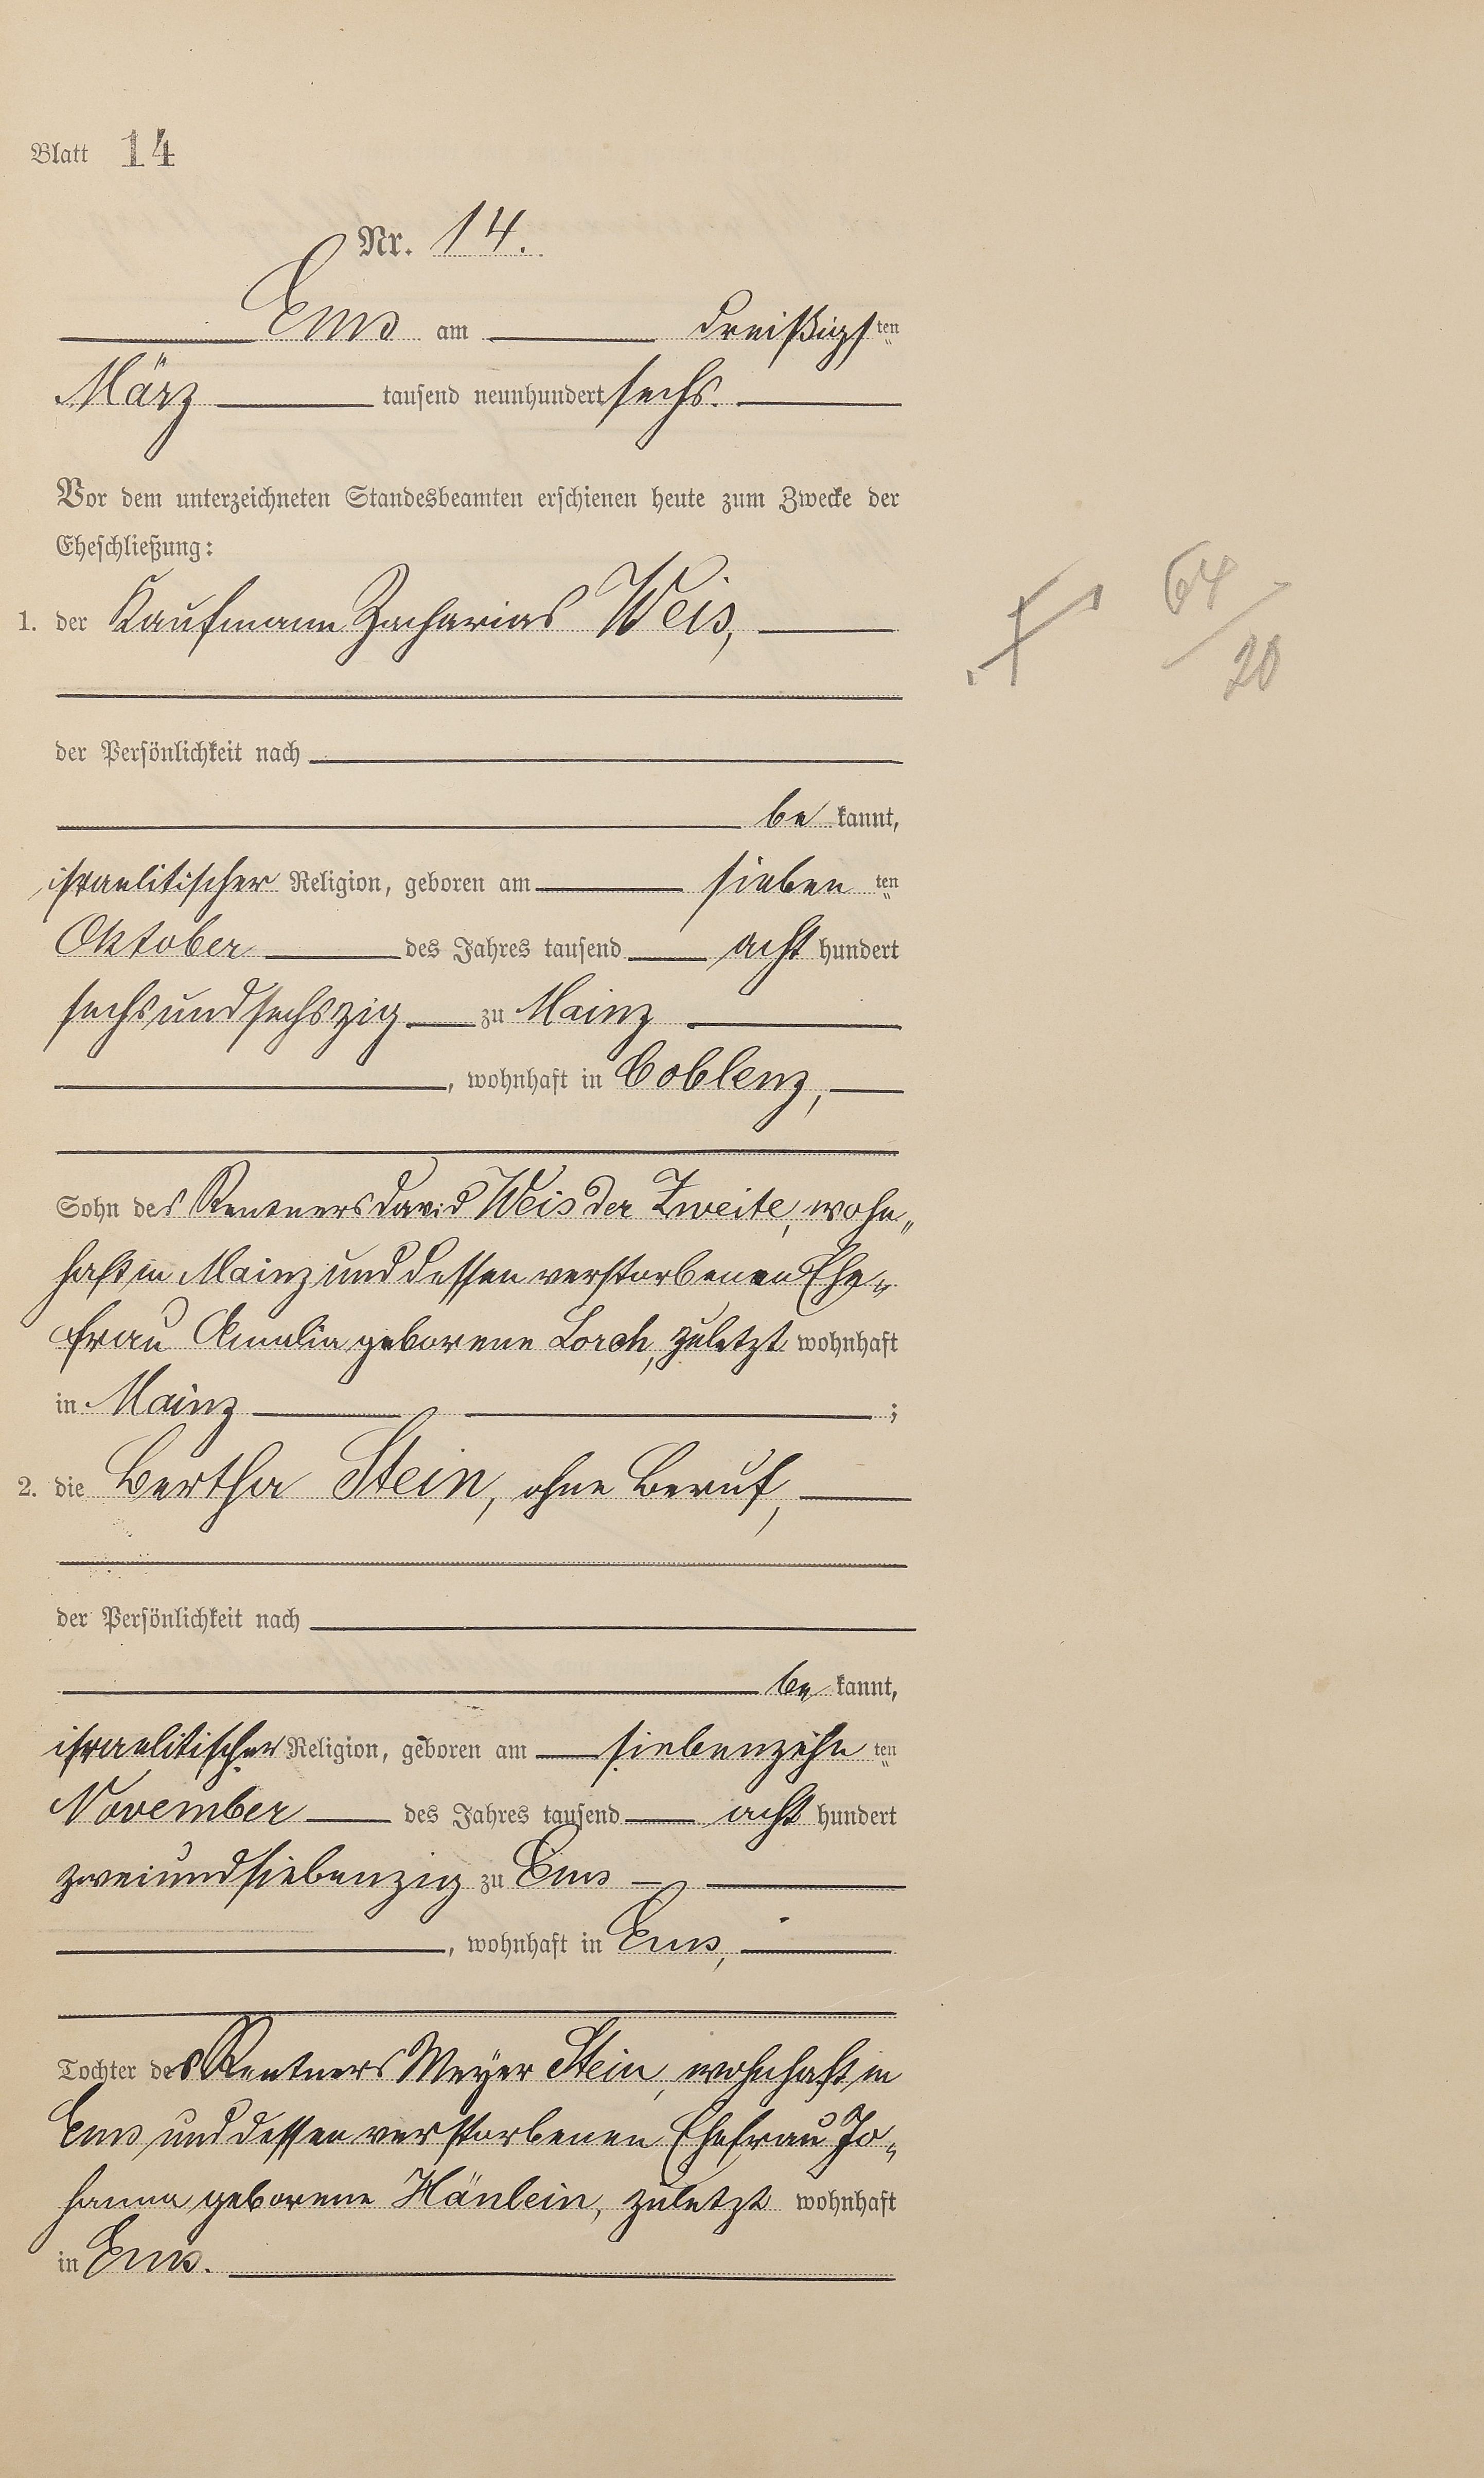 Blatt 14
Nr. 14.
Ems am dreißigsten
März tausend neunhundert sechs.
Vor dem unterzeichneten Standesbeamten erschienen heute zum Zwecke der
Eheschließung:
1. der Kaufmann Zacharias Weis,
64
20
der Persönlichkeit nach
be kannt,
israelitischer Religion, geboren am sieben ten
Oktober des Jahres tausend acht hundert
sechsundsechszig zu Mainz
, wohnhaft in Coblenz,
Sohn des Rentners David Weis der Zweite, wohn„
haft in Mainz und dessen verstorbenen Ehe„
frau Amalia geborene Lorch, zuletzt wohnhaft
in Mainz ;
2. die Bertha Stein, ohne Beruf,
der Persönlichkeit nach
be kannt,
israelitischer Religion, geboren am siebenzehn ten
November des Jahres tausend acht hundert
zweiundsiebenzig zu Ems
, wohnhaft in Ems,
Tochter des Rentners Meyer Stein, wohnhaft in
Ems und dessen verstorbenen Ehefrau Jo„
hanna geborene Hänlein, zuletzt wohnhaft
in Ems.